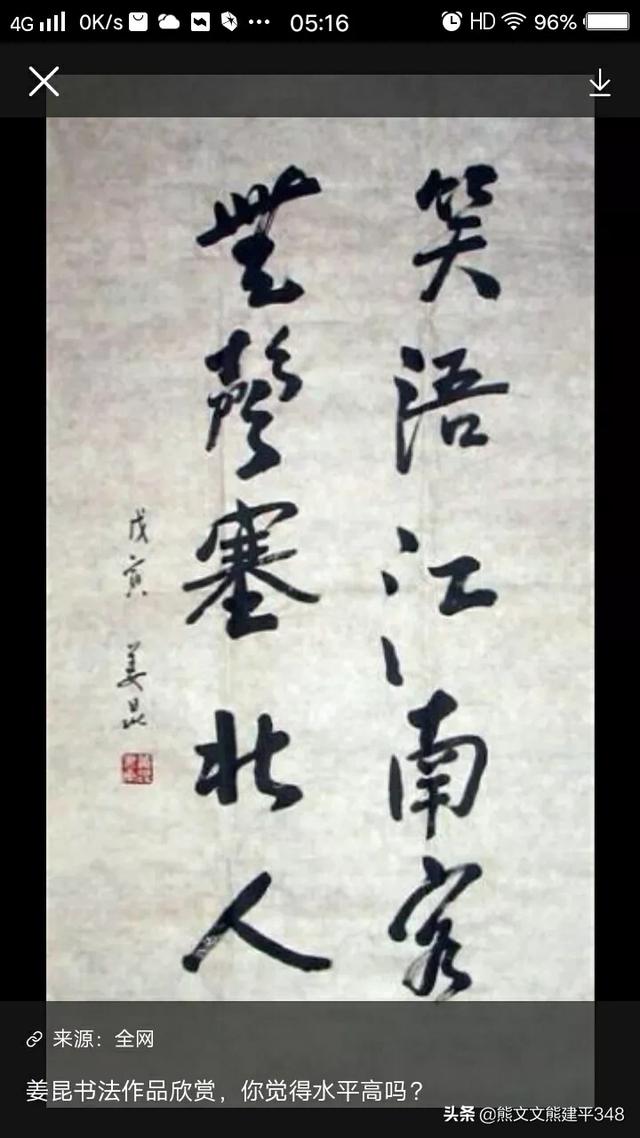 4G 0K/s 05:16 HD 96%
笑語江南客
聲塞北人
戊寅 姜昆
来源：全网
姜昆书法作品欣赏，你觉得水平高吗？
头条 @熊文文熊建平348